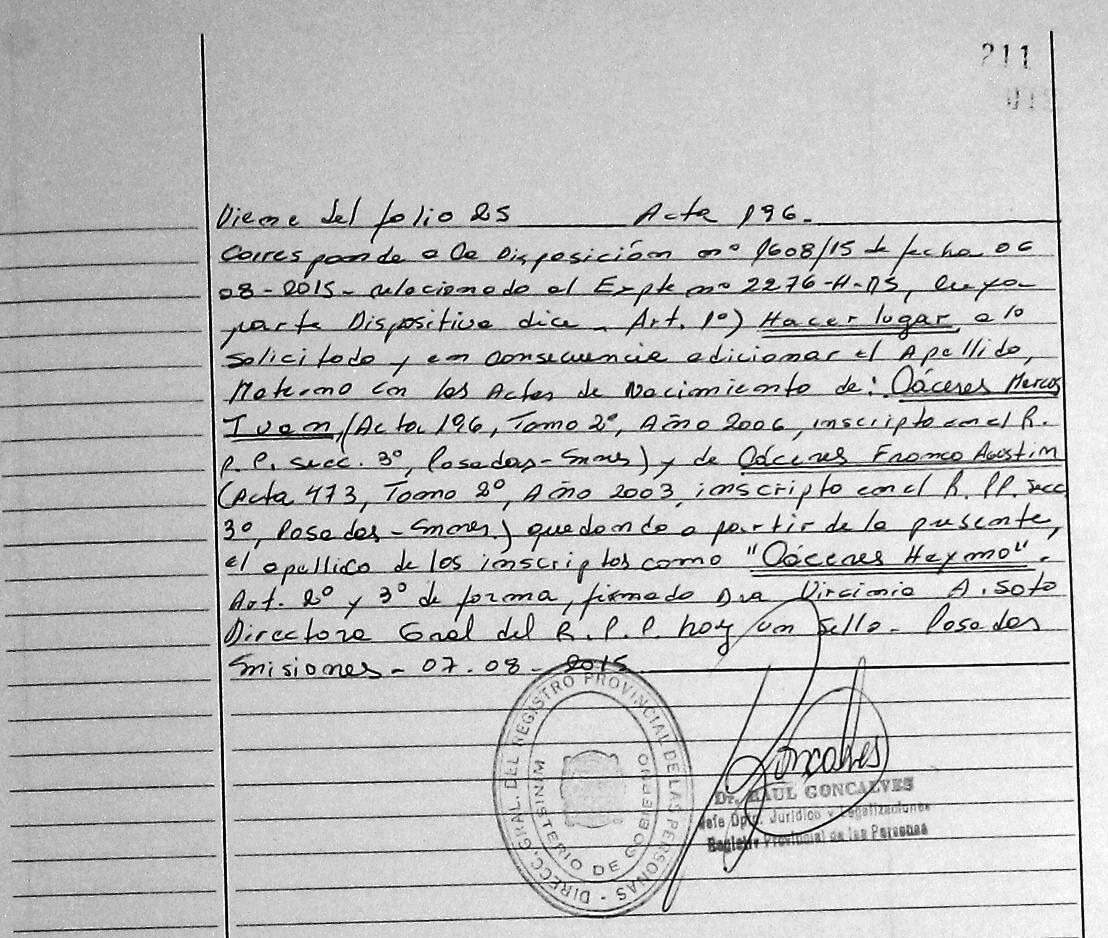 211
Viene del folio 25 Acta 196.
Corresponde a la Disposición nº 1608/15 de fecha 06
08-2015- relacionado al Expte nº 2276-H-15, cuya
parte Dispositiva dice. Art. 1º) Hacer lugar a lo
solicitado y en consecuencia adicionar el Apellido,
Materno en las Actas de Nacimiento de: Cáceres Marcos
Ivan (Acta 196, Tomo 2º, Año 2006, inscripto en el R.
P. P. secc. 3º, Posadas-Smnes) y de Cáceres Franco Agustin
(Acta 473, Tomo 2º, Año 2003, inscripto en el R. PP. secc
3º, Posadas-Smnes.) quedando a partir de la presente,
el apellido de los inscriptos como "Cáceres Haymo".
Art. 2º y 3º de forma, firmado Dra Virginia A. Soto
Directora Gral del R. P. P hay un sello- Posadas
Misiones - 07.08- 2015
DIRECC. GRAL. DEL REGISTRO PROVINCIAL DE LAS PERSONAS -
MINISTERIO DE GOBIERNO
Goncalves
Dr. RAUL GONCALVES
Jefe Dpto. Jurídico y Legalizaciones
Registro Provincial de las Personas